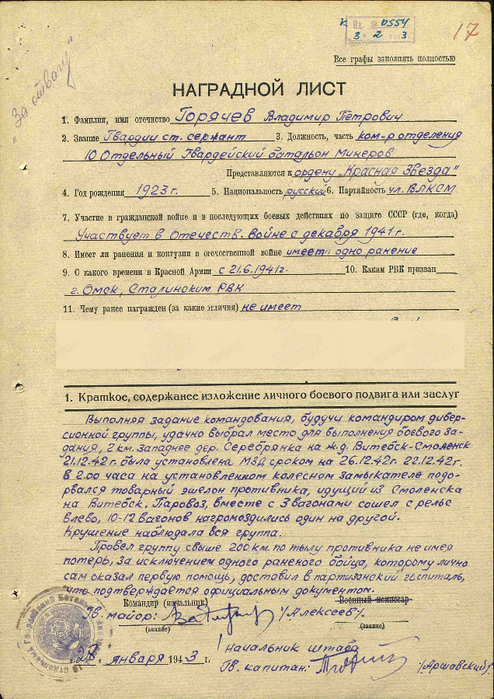 К Вх. № 0554
3 2 3
17
Все графы заполнять полностью
"За отвагу"
НАГРАДНОЙ ЛИСТ
1. Фамилия, имя отчество Горячев Владимир Петрович
2. Звание Гвардии ст. сержант 3. Должность, часть ком-р отделения
10 Отдельный Гвардейский батальон минеров
Представляется к ордену „Красная Звезда"
4. Год рождения 1923 г. 5. Национальность русский 6. Партийность чл. ВЛКСМ
7. Участие в гражданской войне и в последующих боевых действиях по защите СССР (где, когда)
Участвует в Отечеств. войне с декабря 1941 г.
8. Имеет ли ранения и контузии в отечественной войне имеет одно ранение
9. С какого времени в Красной Армии с 21.6.1941 г. 10. Каким РВК призван
г. Омск, Сталинским РВК
11. Чему ранее награжден (за какие отличия) не имеет
1. Краткое, содержанее изложение личного боевого подвига или заслуг
Выполняя задание командования, будучи командиром дивер-
сионной группы, удачно выбрал место для выполнения боевого за-
дания, 2 км. Западнее дер. Серебрянка на ж.д. Витебск-Смоленск
21.12.42 г. была установлена МЗД сроком на 26.12.42 г. 22.12.42 г.
в 2.00 часа на установленном колесном замыкателе подо-
рвался товарный эшелон противника, идущий из Смоленска
на Витебск. Паровоз, вместе с 3 вагонами сошел с рельс
влево, 10-12 вагонов нагромоздились один на другой.
Крушение наблюдала вся группа.
Провел группу свыше 200 км по тылу противника не имея
потерь, за исключением одного раненого бойца, которому лично
сам оказал первую помощь, доставил в партизанский госпиталь,
что подтверждается официальным документом.
Командир (начальник) Военный комиссар
Гв. майор: /Алексеев/.
(звание) (звание)
28 января 1943 г.
Начальник штаба
Гв. капитан: /Аршавский/.